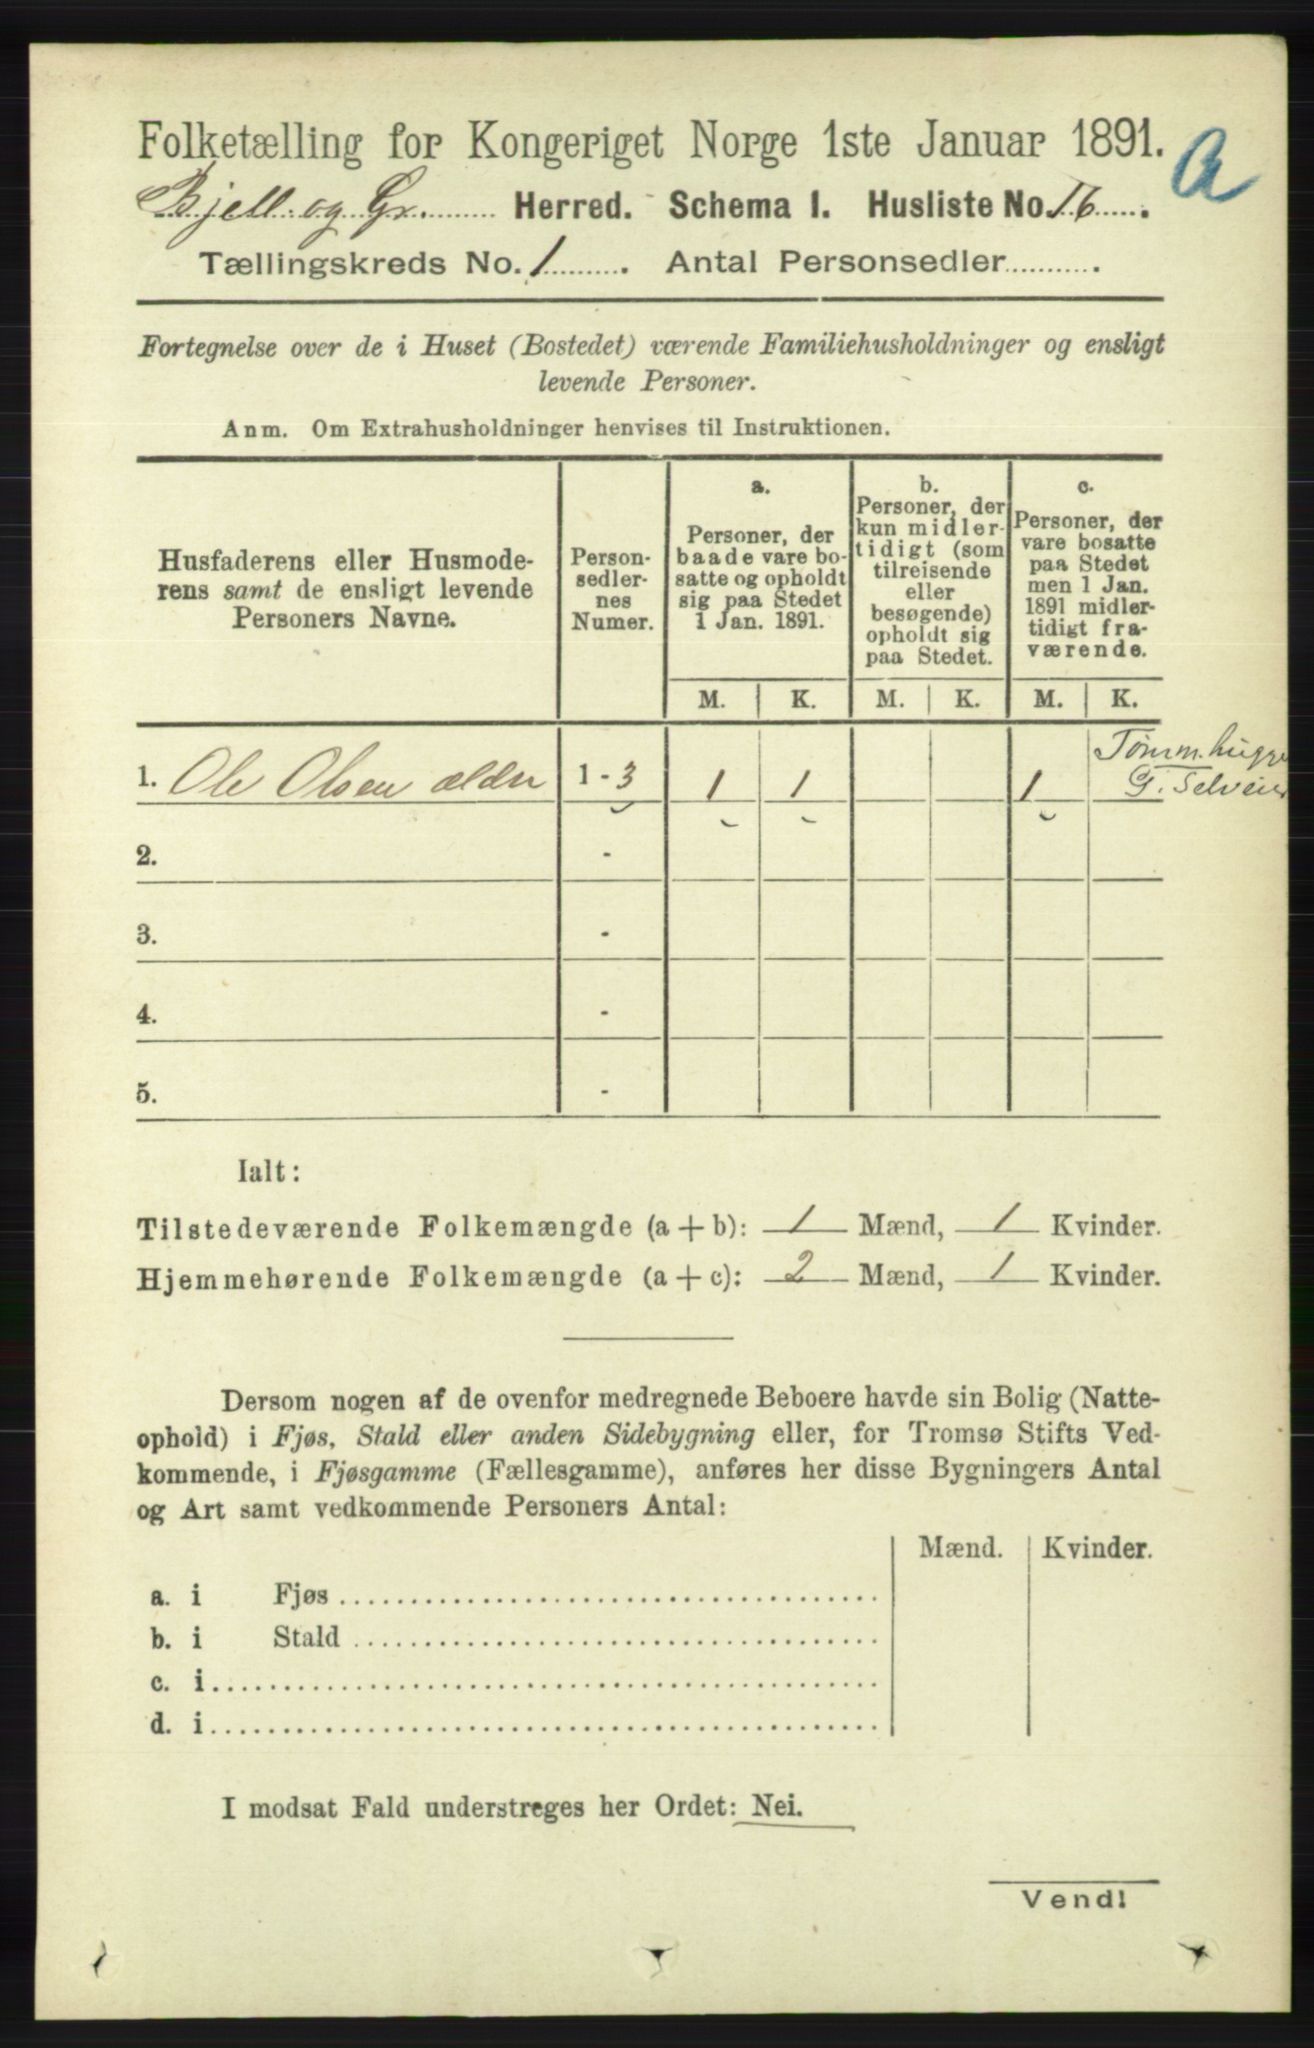 Folketælling for Kongeriget Norge 1ste Januar 1891.
a
Bjell og Gr. Herred. Schema I. Husliste No. 16.
Tællingskreds No. 1. Antal Personsedler.
Fortegnelse over de i Huset (Bostedet) værende Familiehusholdninger og ensligt
levende Personer.
Anm. Om Extrahusholdninger henvises til Instruktionen.
Husfaderens eller Husmode-
rens samt de ensligt levende
Personers Navne.
Person-
sedler-
nes
Numer.
a.
Personer, der
baade vare bo-
satte og opholdt
sig paa Stedet
1 Jan. 1891.
b.
Personer, der
kun midler-
tidigt (som
tilreisende
eller
besøgende)
opholdt sig
paa Stedet.
c.
Personer, der
vare bosatte
paa Stedet
men 1 Jan.
1891 midler-
tidigt fra-
værende.
M. K. M. K. M. K.
1. Ole Olsen ælder 1 - 3 1 1 1 Tømm.hugge
G. Selveier
2. -
3. -
4. -
5. -
Ialt:
Tilstedeværende Folkemængde (a + b): 1 Mænd, 1 Kvinder.
Hjemmehørende Folkemængde (a + c): 2 Mænd, 1 Kvinder.
Dersom nogen af de ovenfor medregnede Beboere havde sin Bolig (Natte-
ophold) i Fjøs, Stald eller anden Sidebygning eller, for Tromsø Stifts Ved-
kommende, i Fjøsgamme (Fællesgamme), anføres her disse Bygningers Antal
og Art samt vedkommende Personers Antal:
Mænd. Kvinder.
a. i Fjøs
b. i Stald
c. i
d. i
I modsat Fald understreges her Ordet: Nei.
Vend!